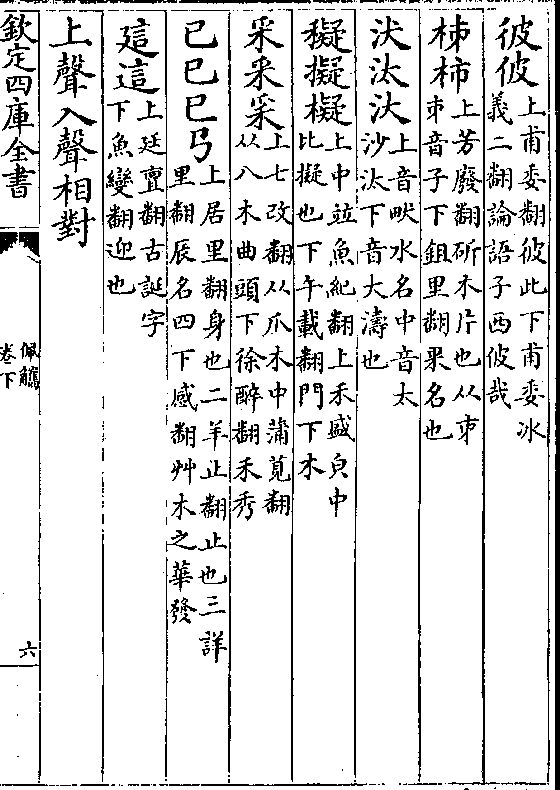 彼佊上甫委翻彼此下甫委冰義二翻論語子西佊哉
柹柿上芳廢翻斫木片也从𣎵𣎵音子下鉏里翻果名也
汱汰汏上音畎水名中音太沙汰下音大濤也
䅲擬檥上中並魚紀翻上禾盛皃中比擬也下午載翻門下木
采釆𥝩上七改翻从爪木中蒲莧翻从八木曲頭下徐醉翻禾秀
己已巳𢎘上居里翻身也二羊止翻止也三詳里翻辰名四下感翻艸木之華發
𨒂這上廷亶翻古誕字下魚變翻迎也
上聲入聲相對
欽定四庫全書
佩觿
卷下
六